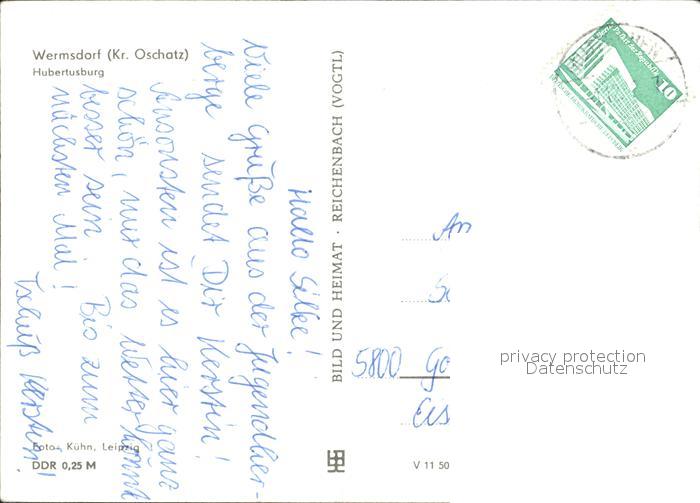 Wermsdorf (Kr. Oschatz)
Hubertusburg
Hallo Silke!
Viele Grüße aus der Jugendher-
berge sendet Dir Kerstin!
Ansonsten ist es hier ganz
schön, nur das Wetter könnt
besser sein. Bis zum
nächsten Mal!
Tschüß Kerstin!
Foto: Kühn, Leipzig
DDR 0,25 M
BILD UND HEIMAT · REICHENBACH (VOGTL)
V 11 50
10
An
5800 Go
Eis
privacy protection
Datenschutz